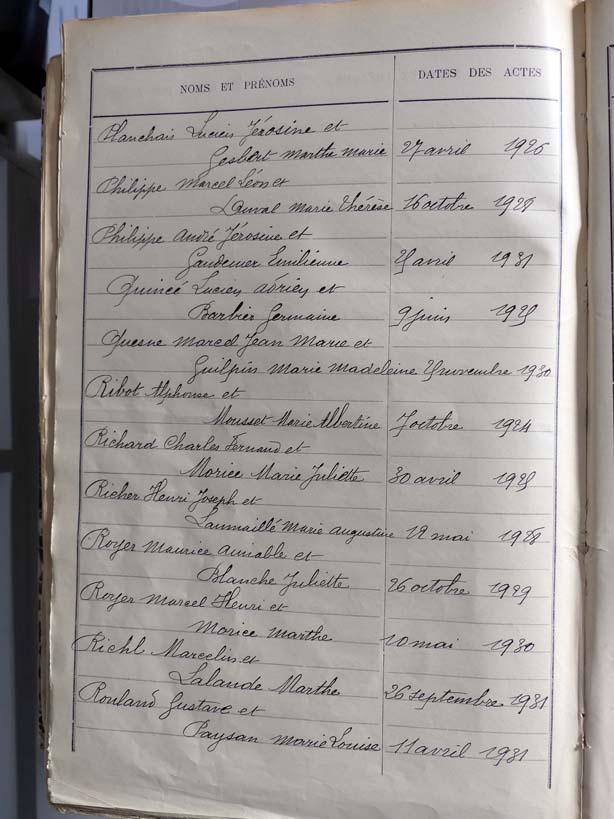 NOMS ET PRÉNOMS DATES DES ACTES
Planchais Lucien Jérosine et
Gesbert Marthe Marie 27 avril 1926
Philippe Marcel Léon et
Lauval Marie Thérèse 16 octobre 1928
Philippe André Jérosine et
Gaudemer Emilienne avril 1931
Quincé Lucien Adrien et
Barbier Germaine 9 juin 1925
Quesne Marcel Jean Marie et
Guilpin Marie Madeleine novembre 1930
Ribot Alphonse et
Mousset Marie Albertine 7 octobre 1924
Richard Charles Fernand et
Morice Marie Juliette 30 avril 1925
Richer Henri Joseph et
Launaillé Marie Augustine 12 mai 1928
Royer Maurice Aimable et
Blanche Juliette 26 octobre 1929
Royer Marcel Henri et
Morice Marthe 10 mai 1930
Richl Marcelin et
Lalande Marthe 26 septembre 1931
Rouland Gustave et
Paysan Marie Louise 11 avril 1931